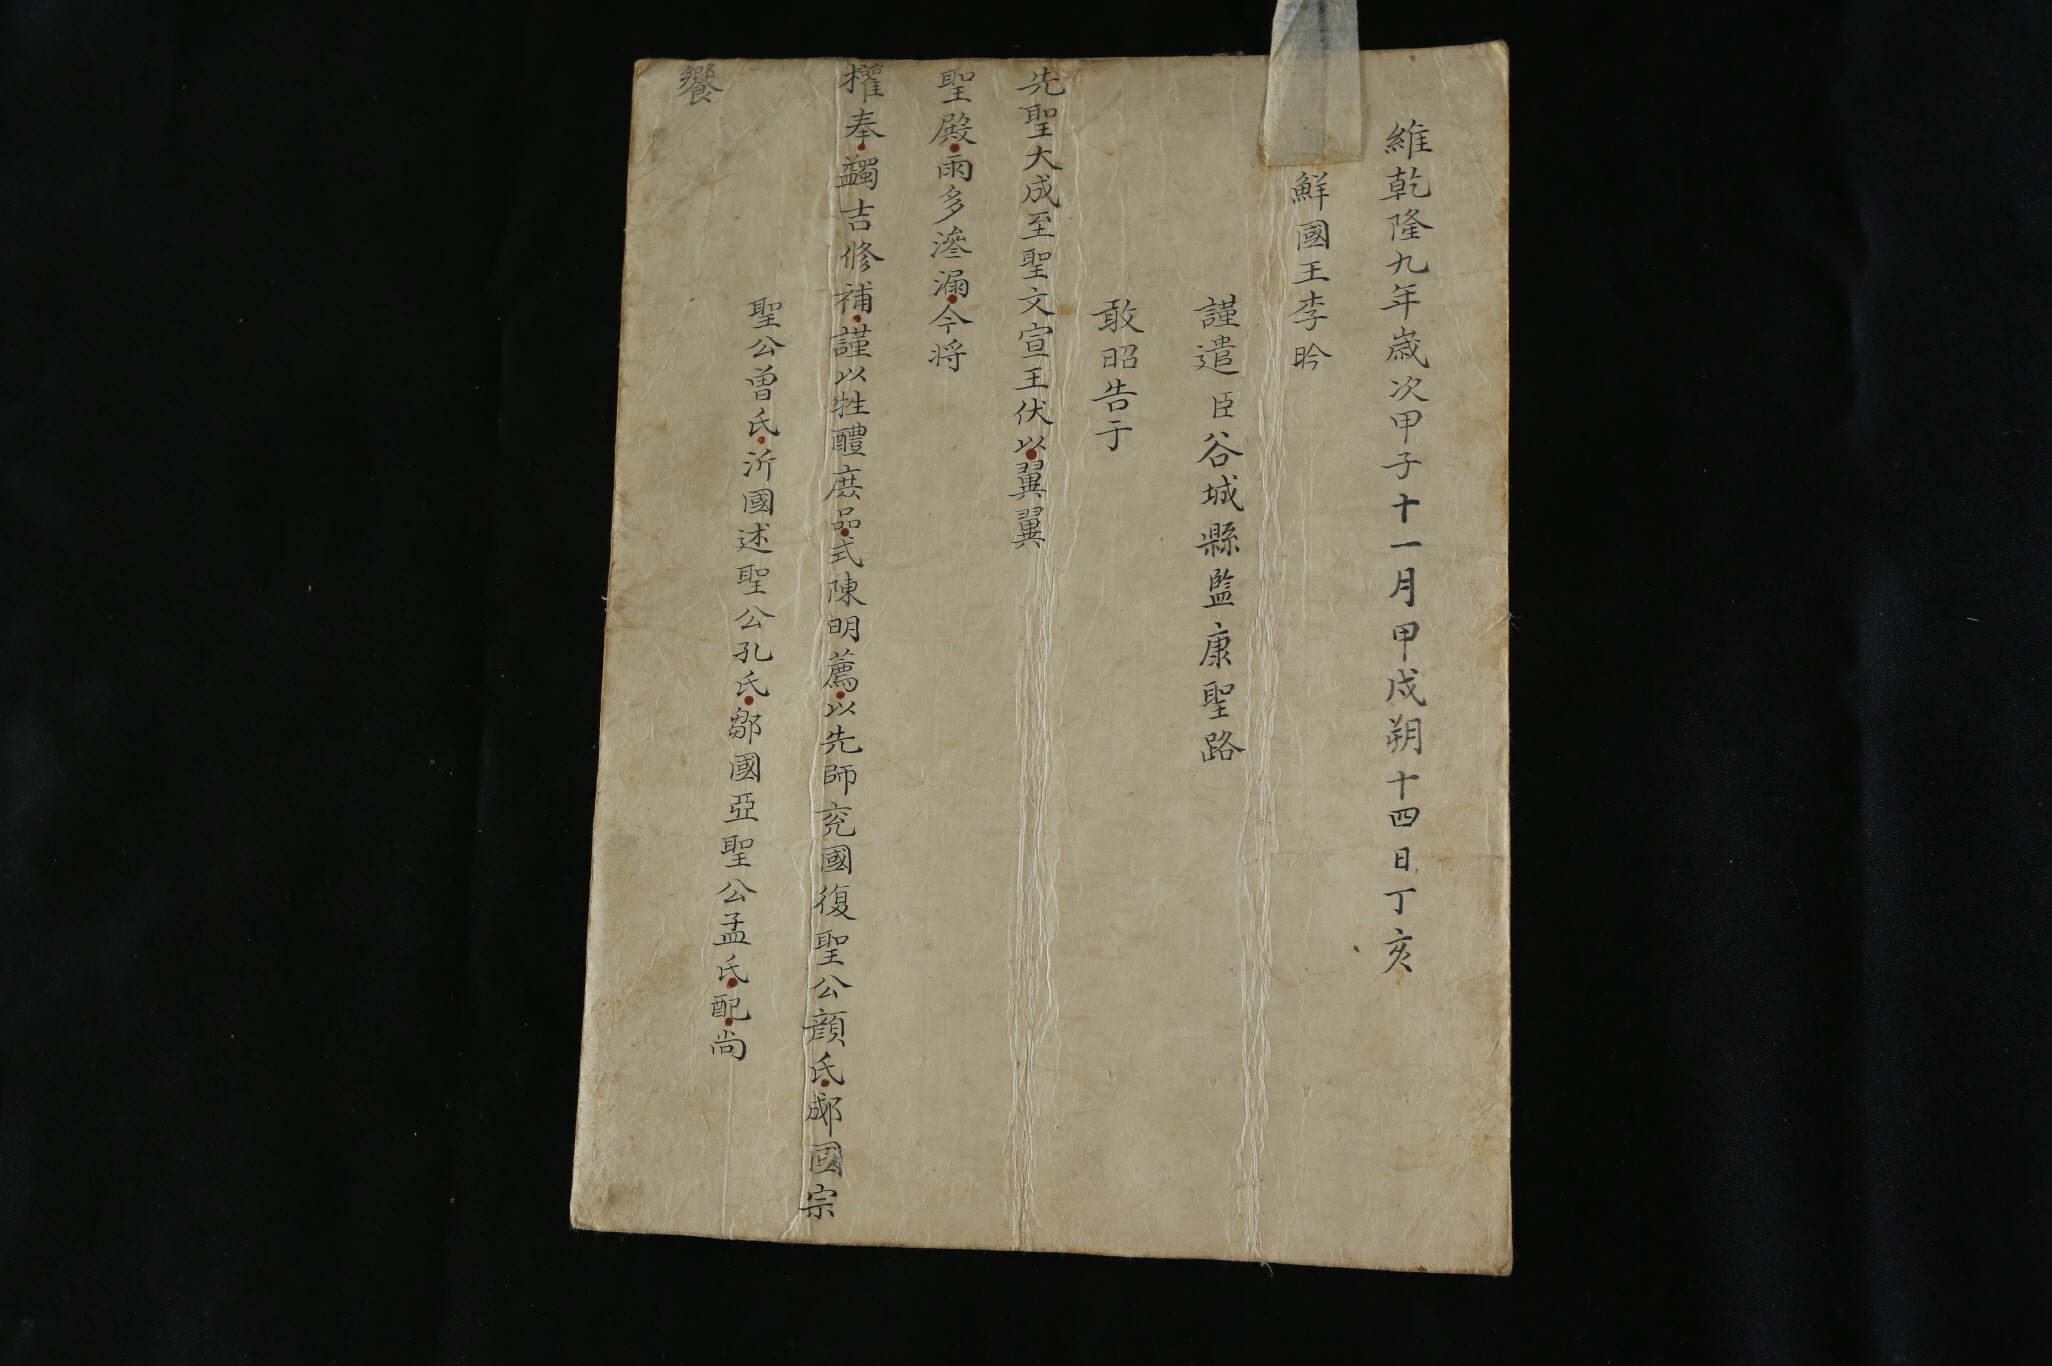 維乾隆九年歲次甲子十一月甲戌朔十四日丁亥
鮮國王李昑
謹遣臣谷城縣監康聖路
敢昭告于
先聖大成至聖文宣王伏以翼翼
聖殿雨多滲漏今将
權奉蠲吉修補謹以牲醴庶品式陳明薦以先師兖國復聖公顔氏郕國宗
聖公曾氏沂國述聖公孔氏鄒國亞聖公孟氏配尚
饗